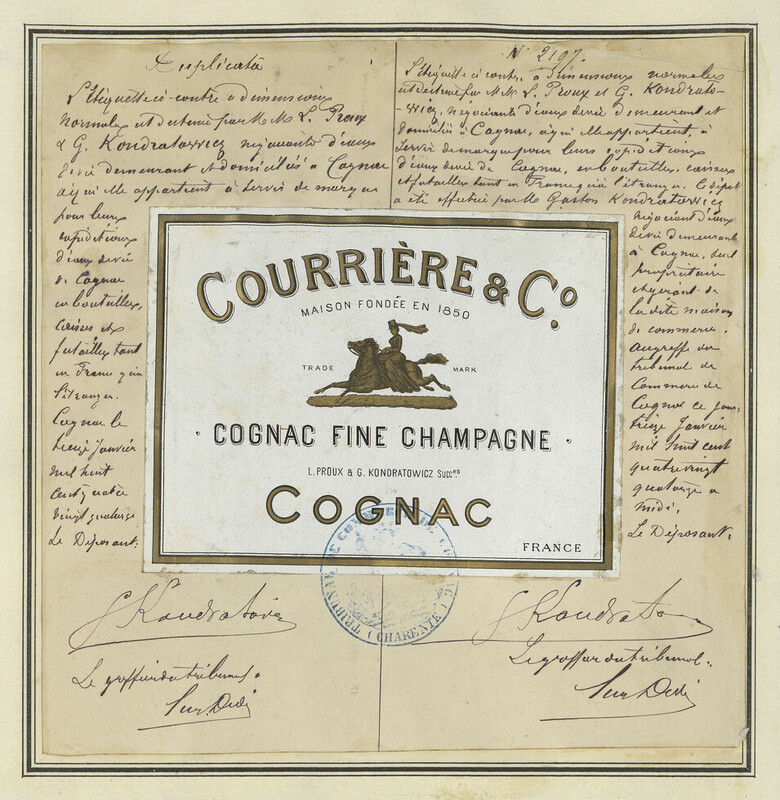 Duplicata
L'étiquette ci-contre a dimensions
normales est destinée par M. M. L. Proux
& G. Kondratowicz négociants d'eaux
de vie demeurant et domiciliés à Cognac
à qui elle appartient à servir de marque
pour leurs
expéditions
d'eaux de vie
de Cognac
en bouteilles,
caisses et
futailles tant
en France qu'à
l'étranger.
Cognac le
treize Janvier
mil huit
cent quatre
vingt quatorze
Le Déposant:
G Kondratowicz
Le greffier du tribunal.
N° 2107.
L'étiquette ci contre, a dimensions normales
est destinée par M M. L. Proux et G. Kondrato-
-wicz, négociants d'eaux de vie demeurant et
domiciliés à Cognac, à qui elle appartient, à
servir de marque pour leurs expéditions
d'eaux de vie de Cognac, en bouteilles, caisses
et futailles tant en France qu'à l'étranger. Le dépôt
a été effectué par M. Gaston Kondratowicz
négociant d'eaux
de vie demeurant
à Cognac, seul
propriétaire
et gérant de
la dite maison
de commerce.
Au greffe du
tribunal de
Commerce de
Cognac ce jour
treize Janvier
mil huit cent
quatre vingt
quatorze à
midi.
Le Déposant:
G Kondrato
Le greffier du tribunal.
COURRIÈRE & Cº
MAISON FONDÉE EN 1850
TRADE MARK
· COGNAC FINE CHAMPAGNE ·
L. PROUX & G. KONDRATOWICZ Succrs
COGNAC
FRANCE
TRIBUNAL DE COMMERCE DE COGNAC
(CHARENTE)